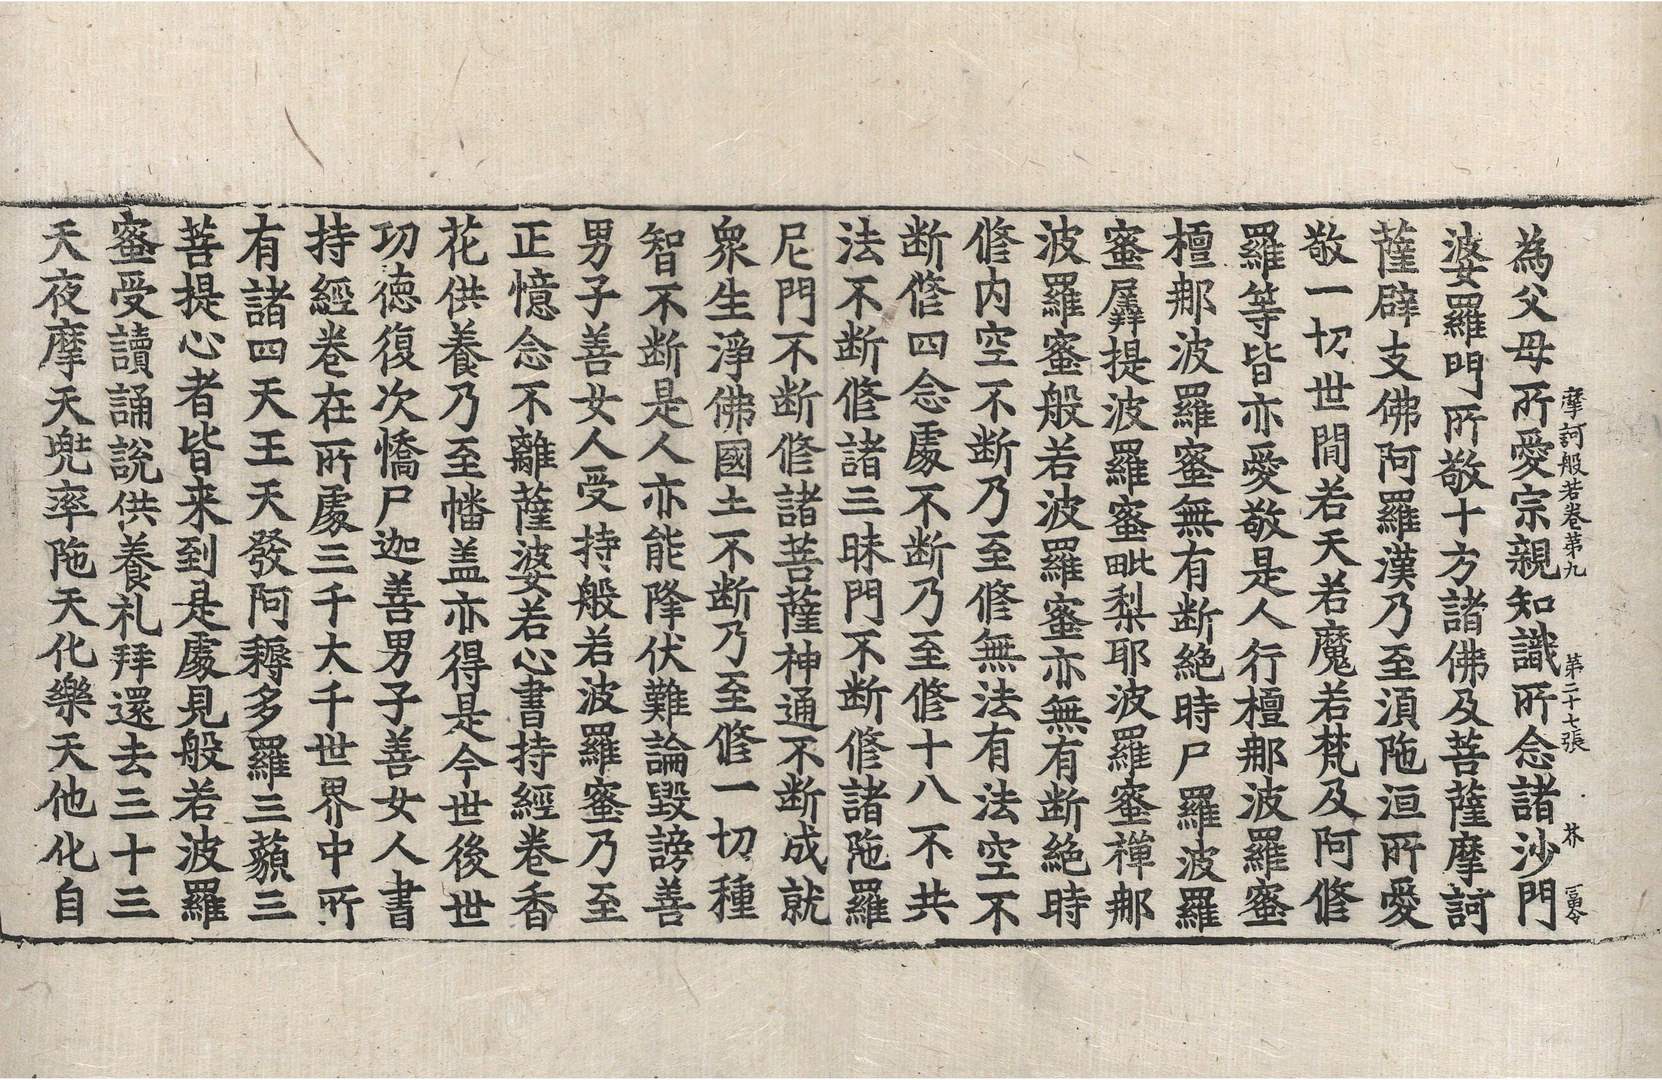 摩訶般若卷第九 第二十七張 芥 冨令
為父母所愛宗親知識所念諸沙門
婆羅門所敬十方諸佛及菩薩摩訶
薩辟支佛阿羅漢乃至須陁洹所愛
敬一切世間若天若魔若梵及阿修
羅等皆亦愛敬是人行檀那波羅蜜
檀那波羅蜜無有断絕時尸羅波羅
蜜羼提波羅蜜毗梨耶波羅蜜禪那
波羅蜜般若波羅蜜亦無有断絕時
修內空不断乃至修無法有法空不
断修四念處不断乃至修十八不共
法不断修諸三昧門不断修諸陁羅
尼門不断修諸菩薩神通不断成就
衆生淨佛國土不断乃至修一切種
智不断是人亦能降伏難論毀謗善
男子善女人受持般若波羅蜜乃至
正憶念不離薩婆若心書持經卷香
花供養乃至幡盖亦得是今世後世
功德復次憍尸迦善男子善女人書
持經卷在所處三千大千世界中所
有諸四天王天發阿耨多羅三藐三
菩提心者皆来到是處見般若波羅
蜜受讀誦說供養礼拜還去三十三
天夜摩天兜率陁天化樂天他化自